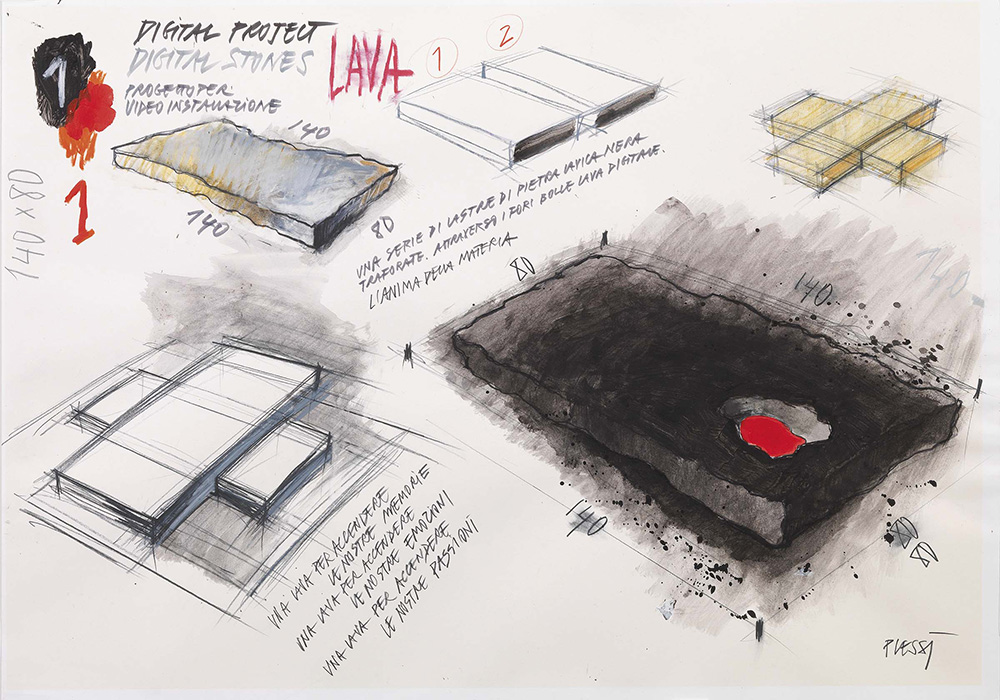 1
DIGITAL PROJECT
DIGITAL STONES
LAVA
PROGETTO PER
VIDEO INSTALLAZIONE
1
2
1
140 x 80
140
140
80
UNA SERIE DI LASTRE DI PIETRA LAVICA NERA
TRAFORATE. ATTRAVERSO I FORI BOLLE LAVA DIGITALE.
L'ANIMA DELLA MATERIA
80
140
140
140
80
80
UNA LAVA PER ACCENDERE
LE NOSTRE MEMORIE
UNA LAVA PER ACCENDERE
LE NOSTRE EMOZIONI
UNA LAVA PER ACCENDERE
LE NOSTRE PASSIONI
PLESSI